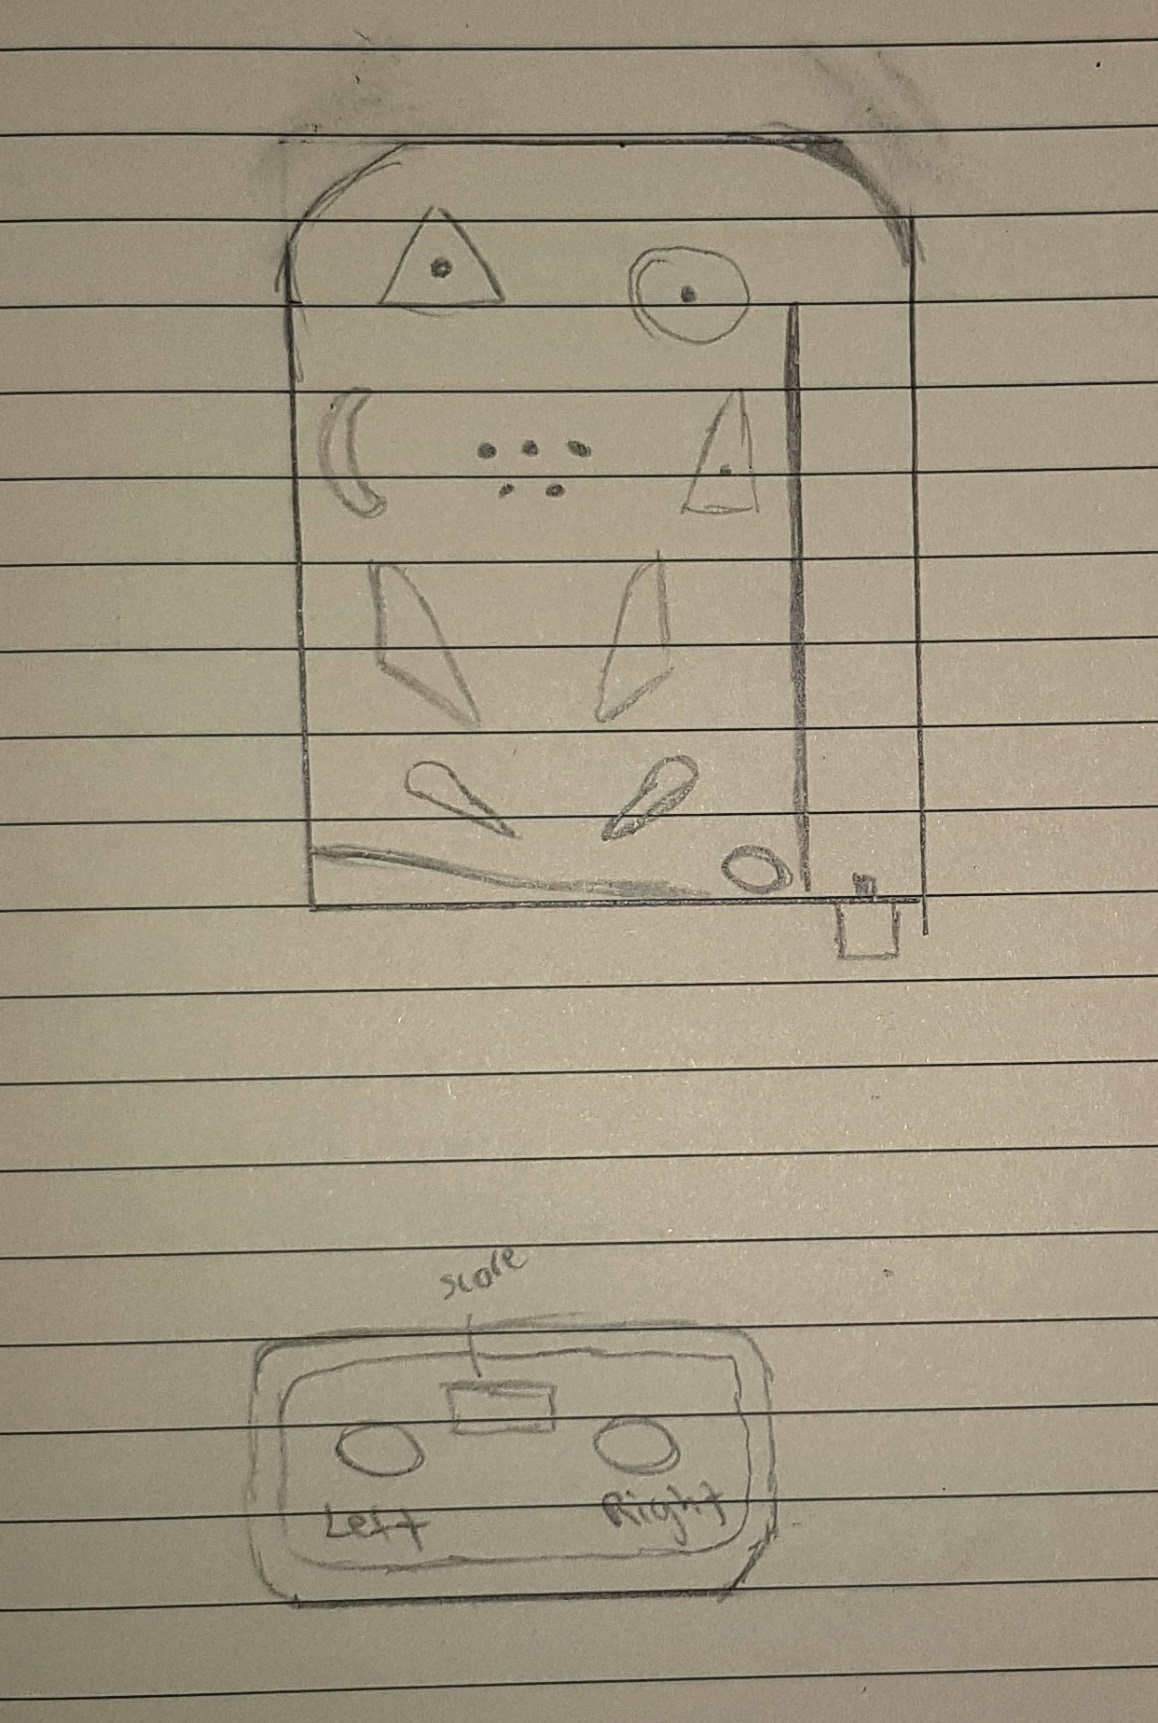 score
Left
Right